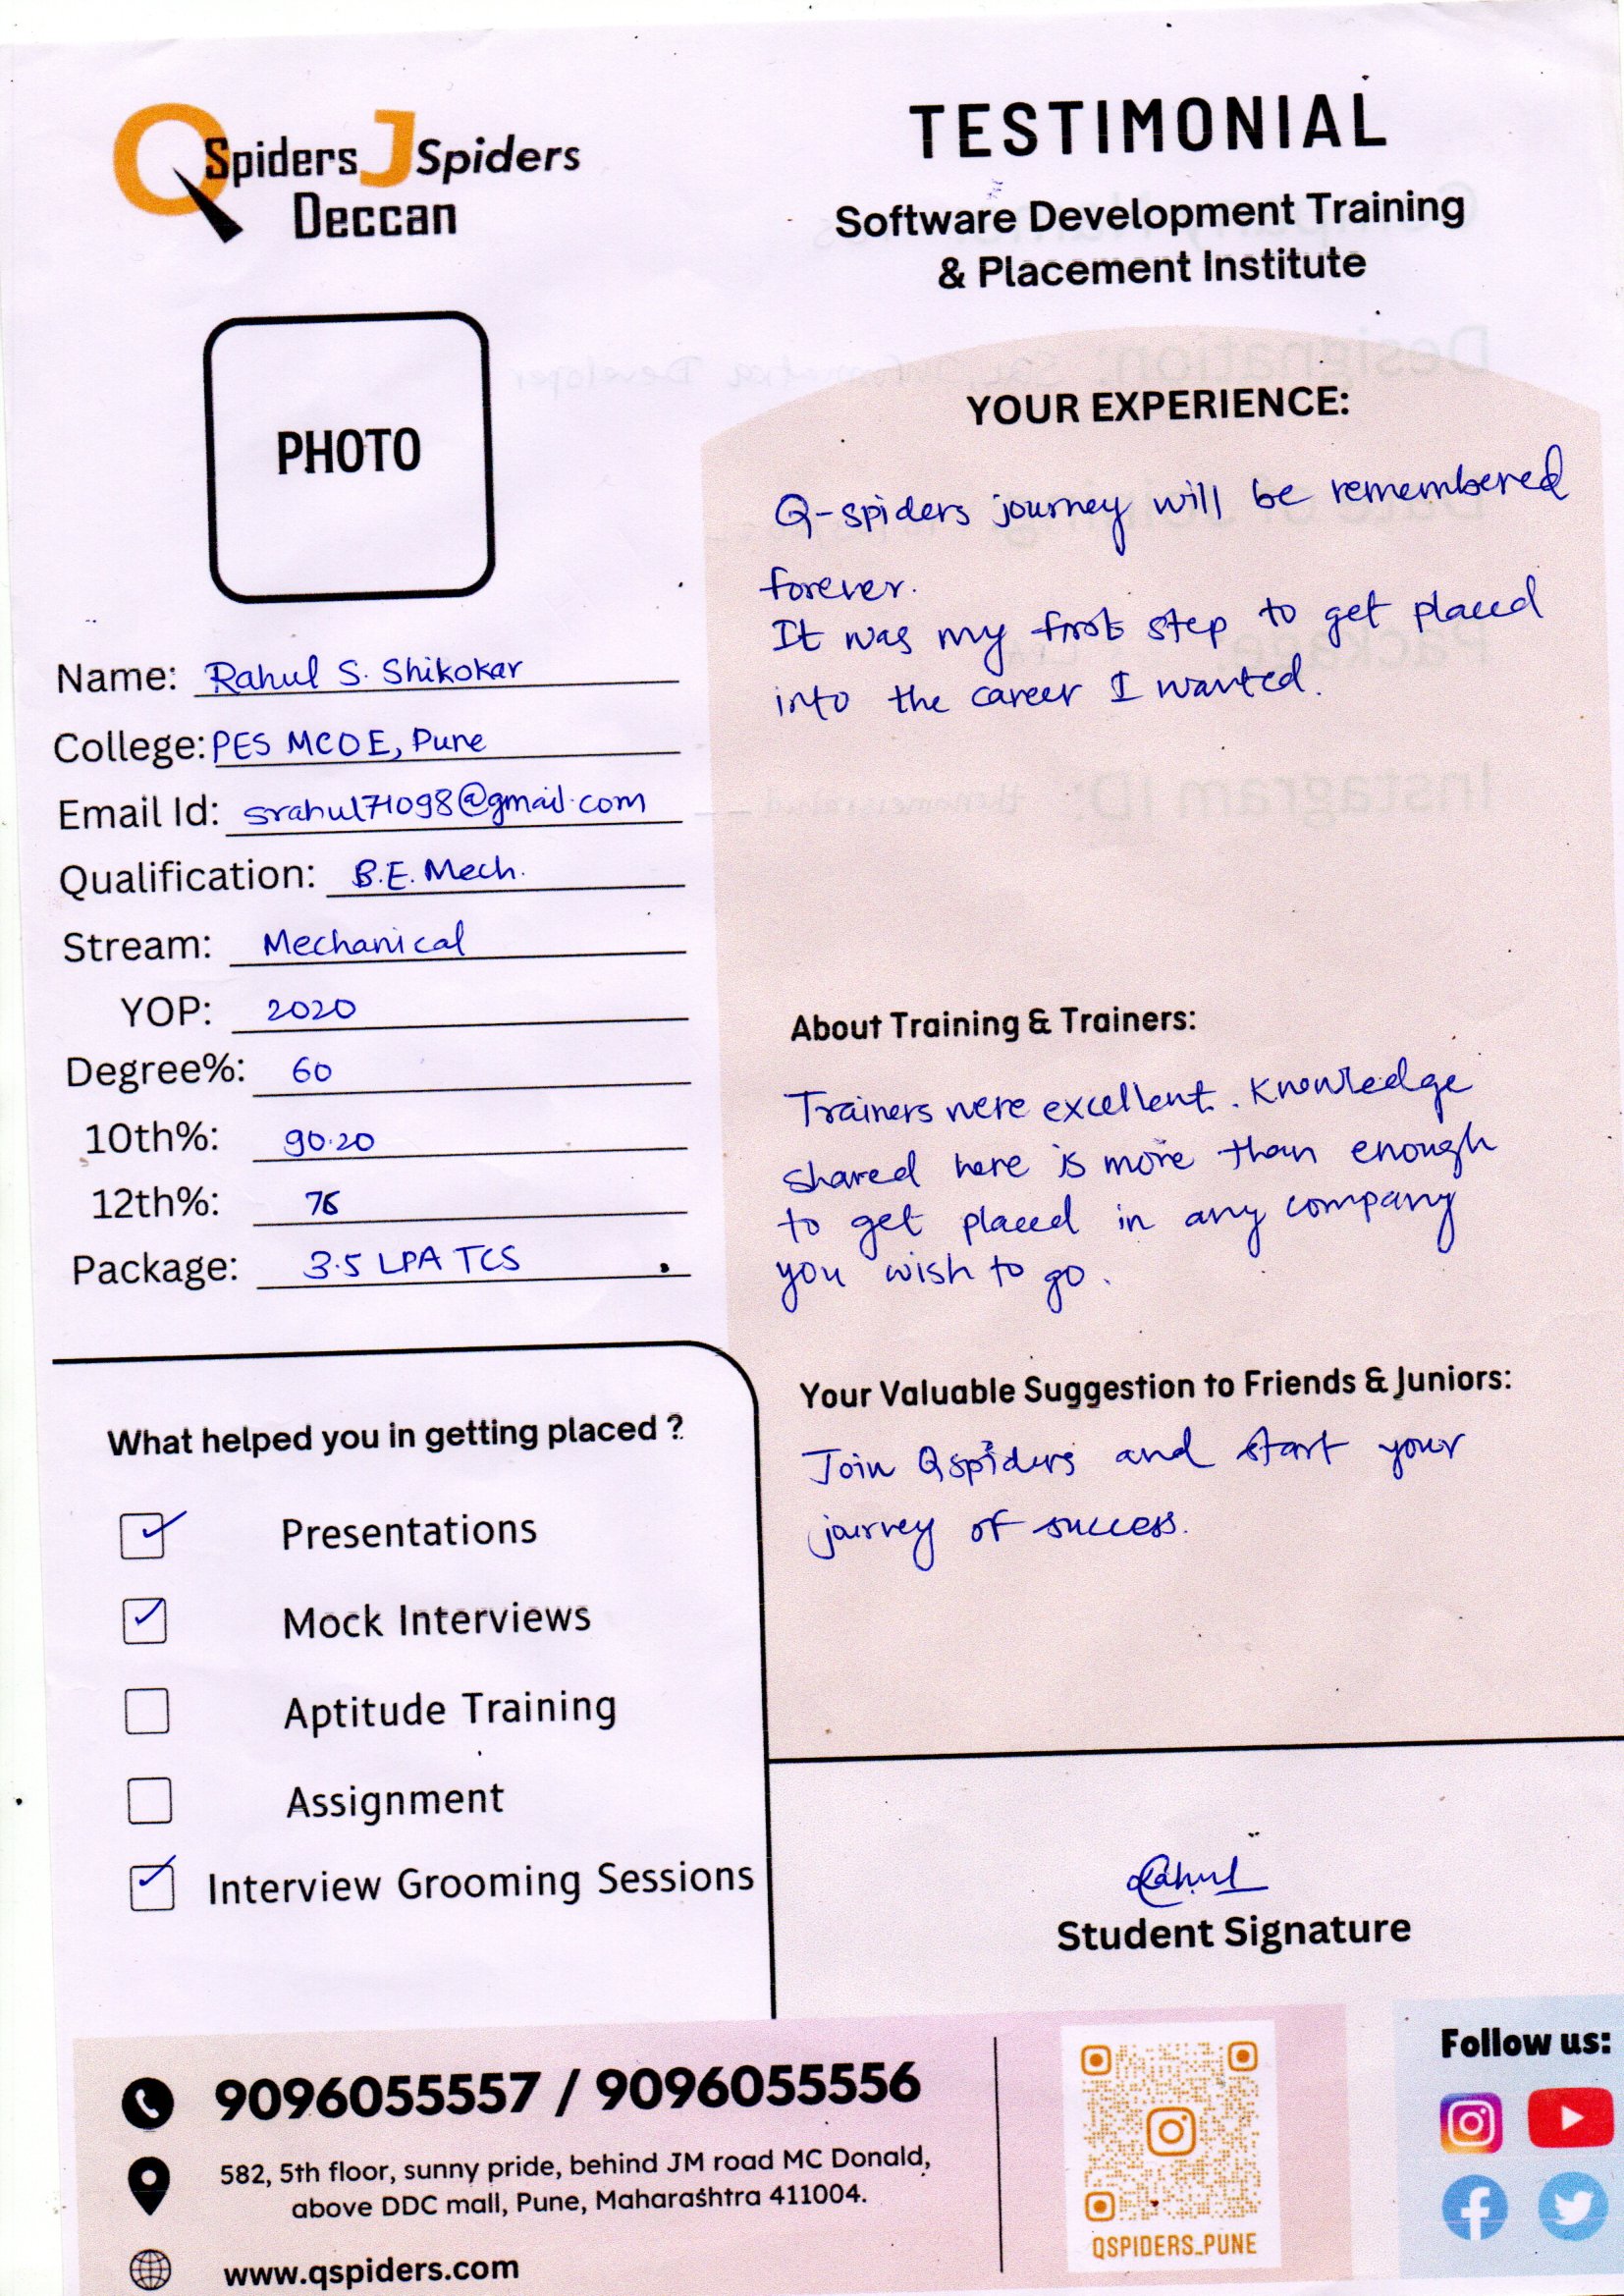 QSpiders JSpiders
Deccan
TESTIMONIAL
Software Development Training
& Placement Institute
PHOTO
Name: Rahul S. Shikokar
College: PES MCOE, Pune
Email Id: srahul71098@gmail.com
Qualification: B.E. Mech.
Stream: Mechanical
YOP: 2020
Degree%: 60
10th%: 90.20
12th%: 76
Package: 3.5 LPA TCS
What helped you in getting placed ?
Presentations
Mock Interviews
Aptitude Training
Assignment
Interview Grooming Sessions
YOUR EXPERIENCE:
Q-spiders journey will be remembered
forever.
It was my first step to get placed
into the career I wanted.
About Training & Trainers:
Trainers were excellent. Knowledge
shared here is more than enough
to get placed in any company
you wish to go.
Your Valuable Suggestion to Friends & Juniors:
Join Qspiders and start your
journey of success.
Rahul
Student Signature
9096055557 / 9096055556
582, 5th floor, sunny pride, behind JM road MC Donald,
above DDC mall, Pune, Maharashtra 411004.
www.qspiders.com
QSPIDERS_PUNE
Follow us: